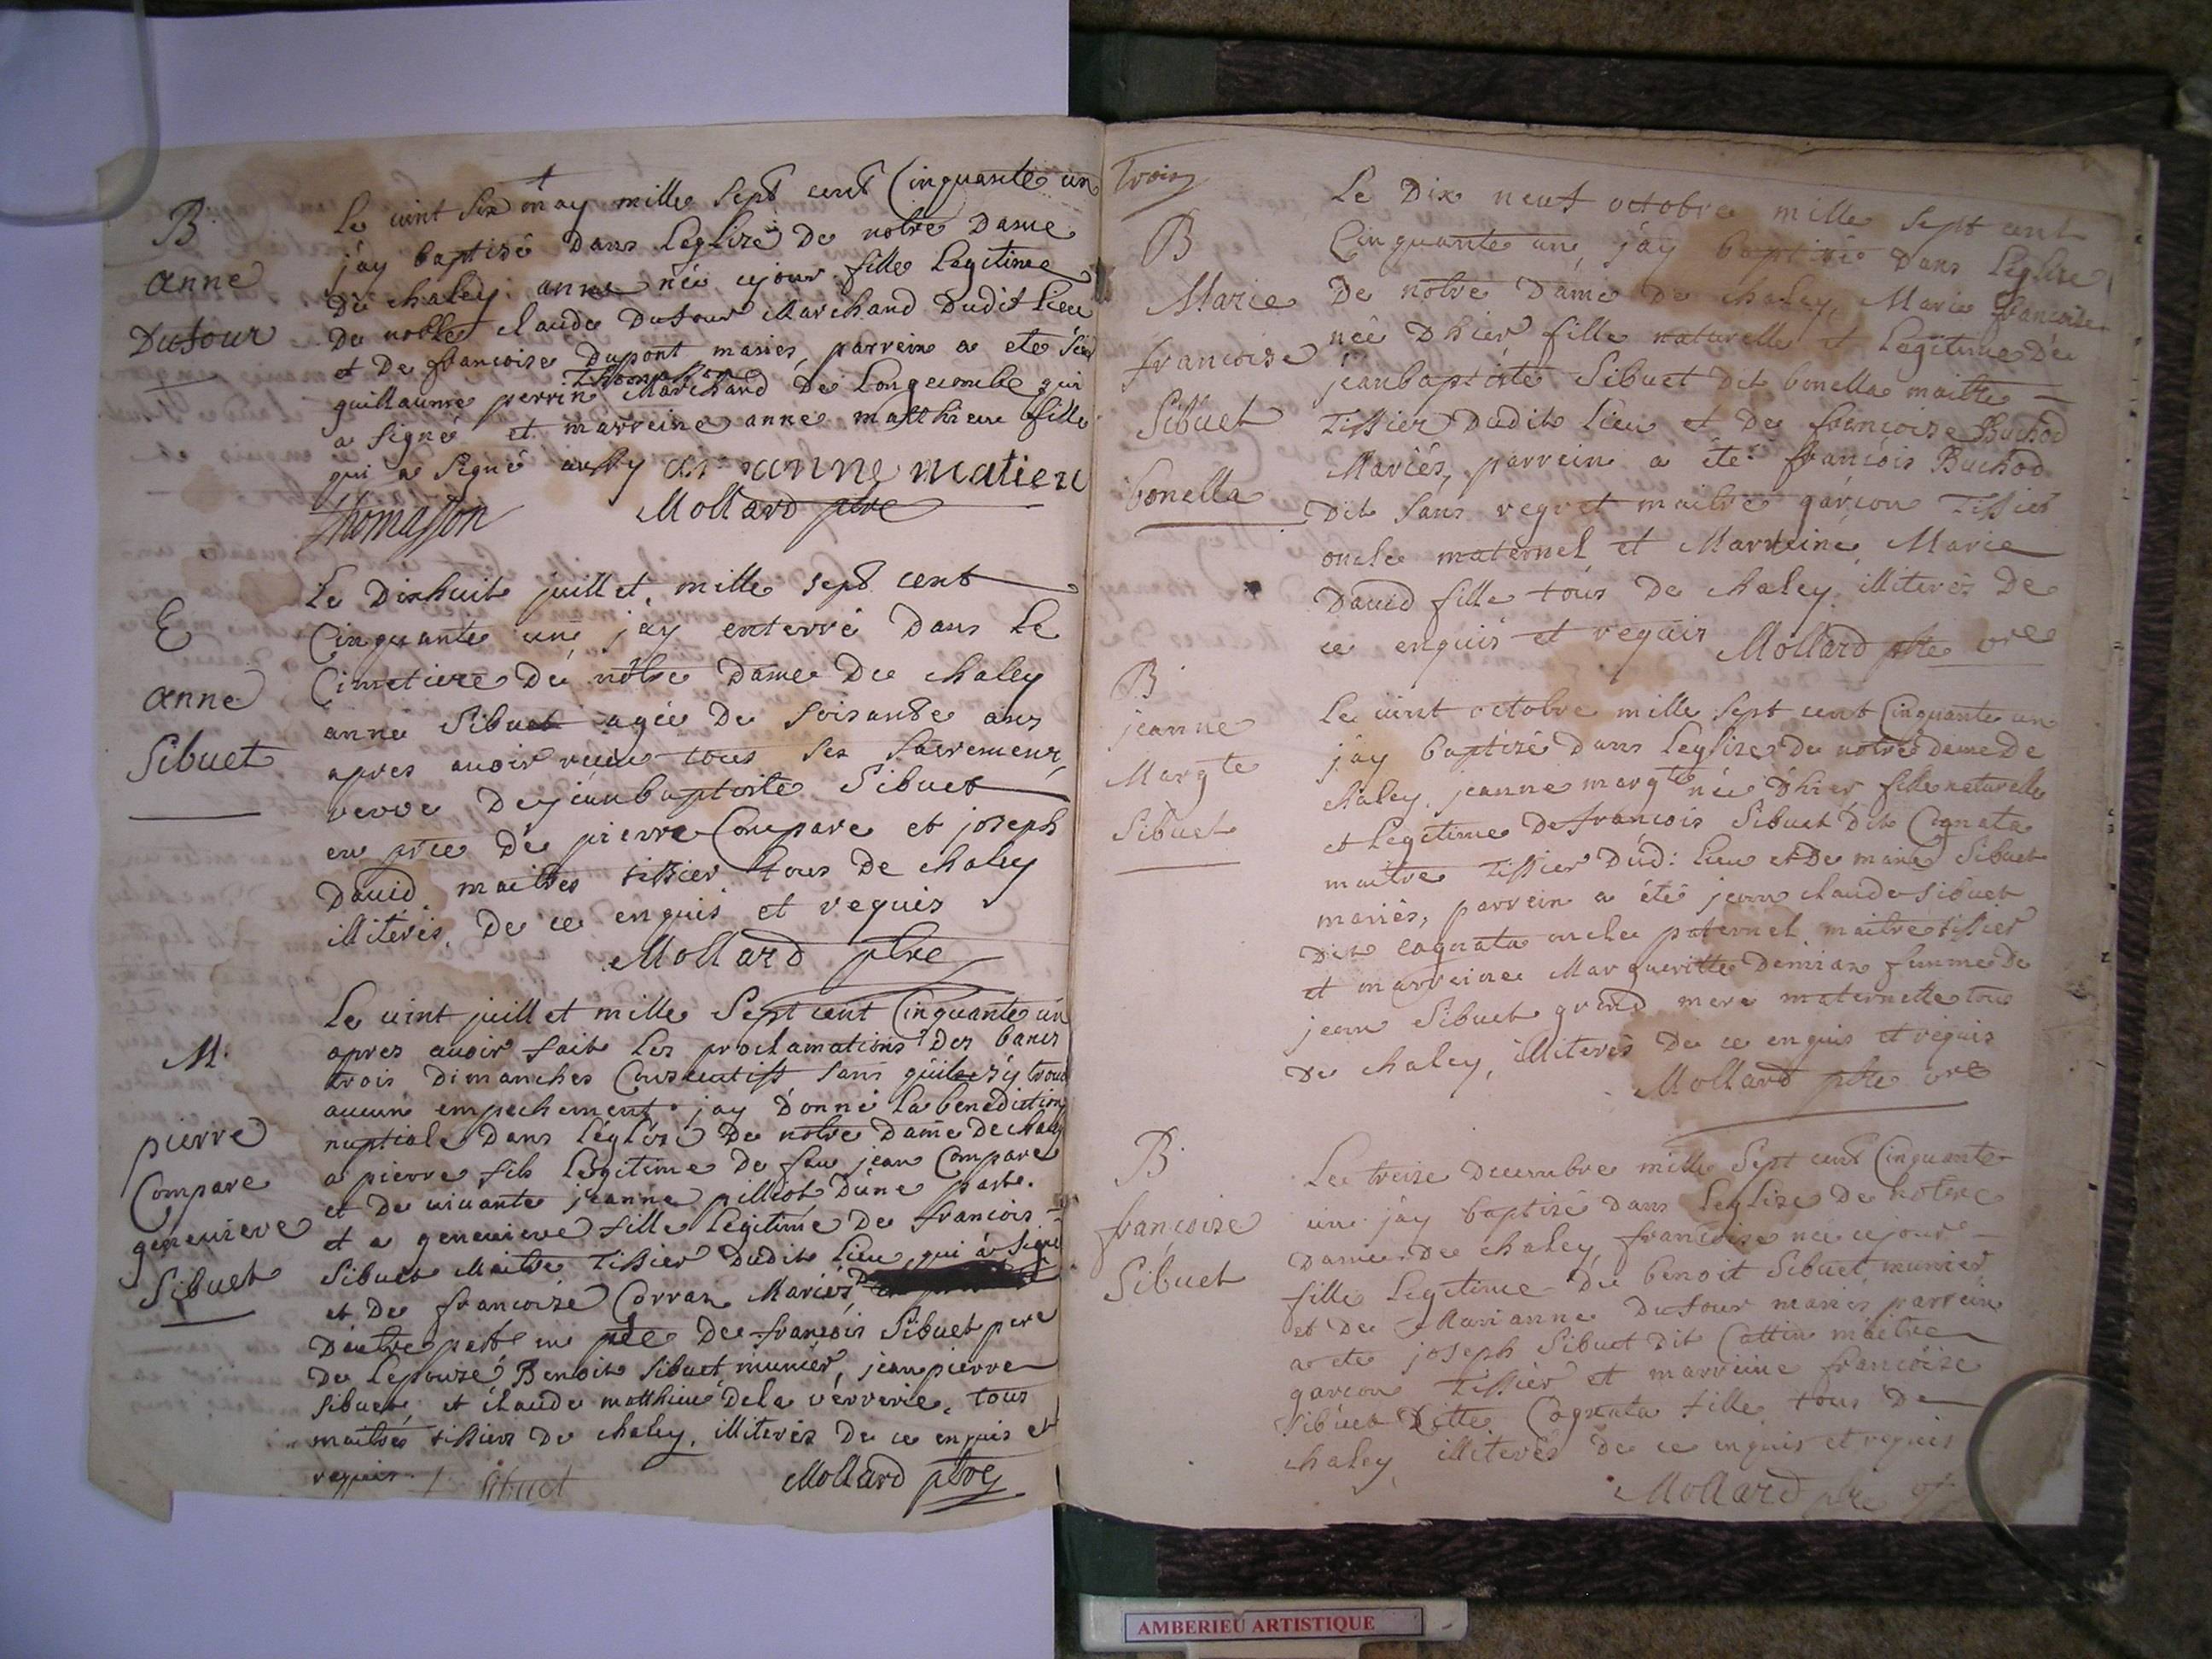 B.
anne
Dufour
Le vint six may mille sept cent Cinquante un
jáy baptisé dans Leglise De notre Dame
De chaley anne née cejour fille Legitime
De noble claude Dufour Marchand Dudit Lieu
et De francoise Dupont mariés, parrein a eté Sieur
Thomasson
guillaume perrin Marchand De Longecombe qui
a signé et marreine anne matthieu fille
qui a signé aussy anne matieu
Thomasson Mollard ptre
E
anne
Sibuet
Le Dixhuit juillet mille sept cent
Cinquante un jáy enterré Dans Le
Cimetiere De notre Dame De chaley
anne Sibuet agée De soisante ans
apres avoir recu tous ses sacremens,
veuve De jeanbaptiste Sibuet
en pñce De pierre Compare et joseph
David maitres tissier tous De chaley
illiterés De ce enquis et requis
Mollard ptre
M.
pierre
Compare
genevieve
Sibuet
Le vint juillet mille Sept cent Cinquante un
apres avoir fait Les proclamations Des bancs
trois Dimanches Consecutifs sans quil s'y trouve
aucun empechement jay Donné La benediction
nuptiale Dans Léglise De notre Dame De chaley
a pierre fils Legitime De feu jean Compare
et De vivante jeanne pilliot Dune part.
et a genevieve fille Legitime De francois
Sibuet Maitre Tissier Dudit Lieu qui a signé
et De francoise Corran Mariés
Dautre part en pñce De francois Sibuet pere
De Lepouse Benoit Sibuet munier, jean pierre
Sibuet, et claude matthieu Dela verrerie, tous
maitres tissiers De chaley, illiterés De ce enquis et
requis. f Sibuet Mollard ptre
Trois
B
Marie
francoise
Sibuet
bonella
Le Dix neuf octobre mille sept cent
Cinquante un, jáy baptisé Dans Leglise
De notre Dáme De chaley, Marie francoise
née Dhier fille naturelle et Legitime De
jeanbaptiste Sibuet Dit bonella maitre
Tissier Dudit Lieu et De francoise Buchod
Mariés, parrein a éte francois Buchod
Dit Sans regret maitre garcon Tissier
oncle maternel et Marreine Marie
David fille tous De chaley illiterés De
ce enquis et requis Mollard ptre vre
B
jeanne
Margte
Sibuet
Le vint octobre mille sept cent Cinquante un
jáy baptisé Dans Leglise De notre dame De
chaley, jeanne margte née Dhier fille naturelle
et Legitime De francois Sibuet Dit Cagnata
maitre Tissier Dud: Lieu et De marie Sibuet
mariés, parrein a été jean claude Sibuet
Dit cagnata oncle paternel maitre tissier
et marreine Margueritte Demian femme De
jean Sibuet grand mere maternelle tous
De chaley, illiterés De ce enquis et requis
Mollard ptre vre
B.
francoise
Sibuet
Le treise Decembre mille Sept cent Cinquante
un jáy baptisé Dans Leglise De notre
Dame De chaley, francoise née cejour
fille Legitime De benoit Sibuet munier
et De Marianne Dufour mariés parrein
a ete joseph Sibuet Dit Cattin maitre
garcon Tissier et marreine francoise
Sibuet Ditte Cagnata fille tous De
chaley illiterés De ce enquis et requis
Mollard ptre
AMBERIEU ARTISTIQUE